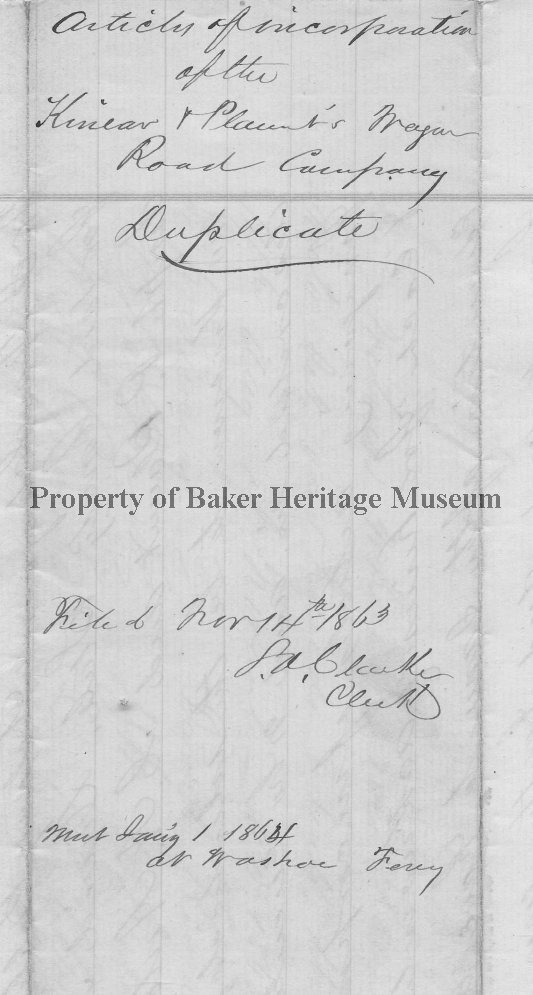 Articles of incorporation
of the
Kinear & Plaunt's Wagon
Road Company
Duplicate
Property of Baker Heritage Museum
Filed Nov 14th 1863
S. A. Clarke
Clerk
1 1864
at Washoe Ferry